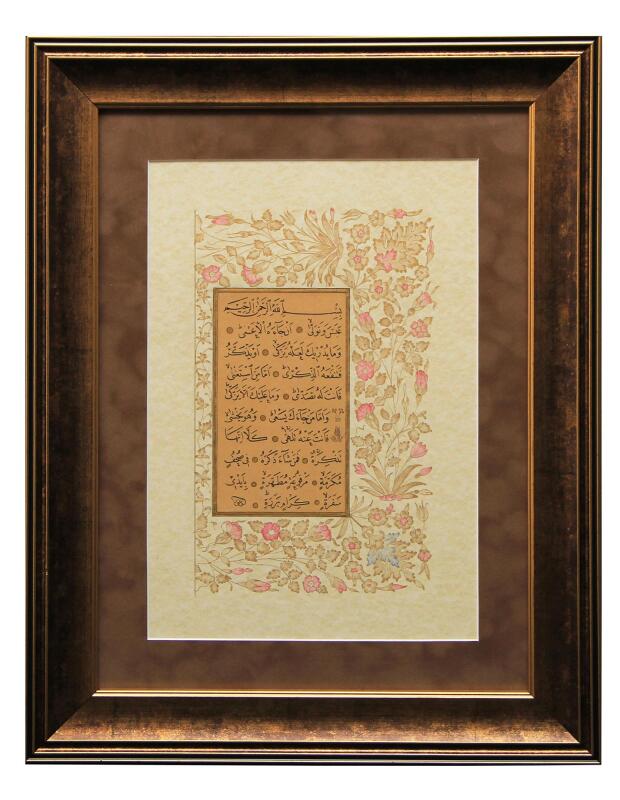 بسم الله الرحمن الرحيم
عَبَسَ وَتَوَلّٰى اَنْ جَاءَهُ الْاَعْمٰى
وَمَا يُدْرِيكَ لَعَلَّهُ يَزَّكّٰى اَوْ يَذَّكَّرُ
فَتَنْفَعَهُ الذِّكْرٰى اَمَّا مَنِ اسْتَغْنٰى
فَاَنْتَ لَهُ تَصَدّٰى وَمَا عَلَيْكَ اَلَّا يَزَّكّٰى
وَاَمَّا مَنْ جَاءَكَ يَسْعٰى وَهُوَ يَخْشٰى
فَاَنْتَ عَنْهُ تَلَهّٰى كَلَّا اِنَّهَا
تَذْكِرَةٌ فَمَنْ شَاءَ ذَكَرَهُ فِى صُحُفٍ
مُكَرَّمَةٍ مَرْفُوعَةٍ مُطَهَّرَةٍ بِاَيْدِى
سَفَرَةٍ كِرَامٍ بَرَرَةٍ